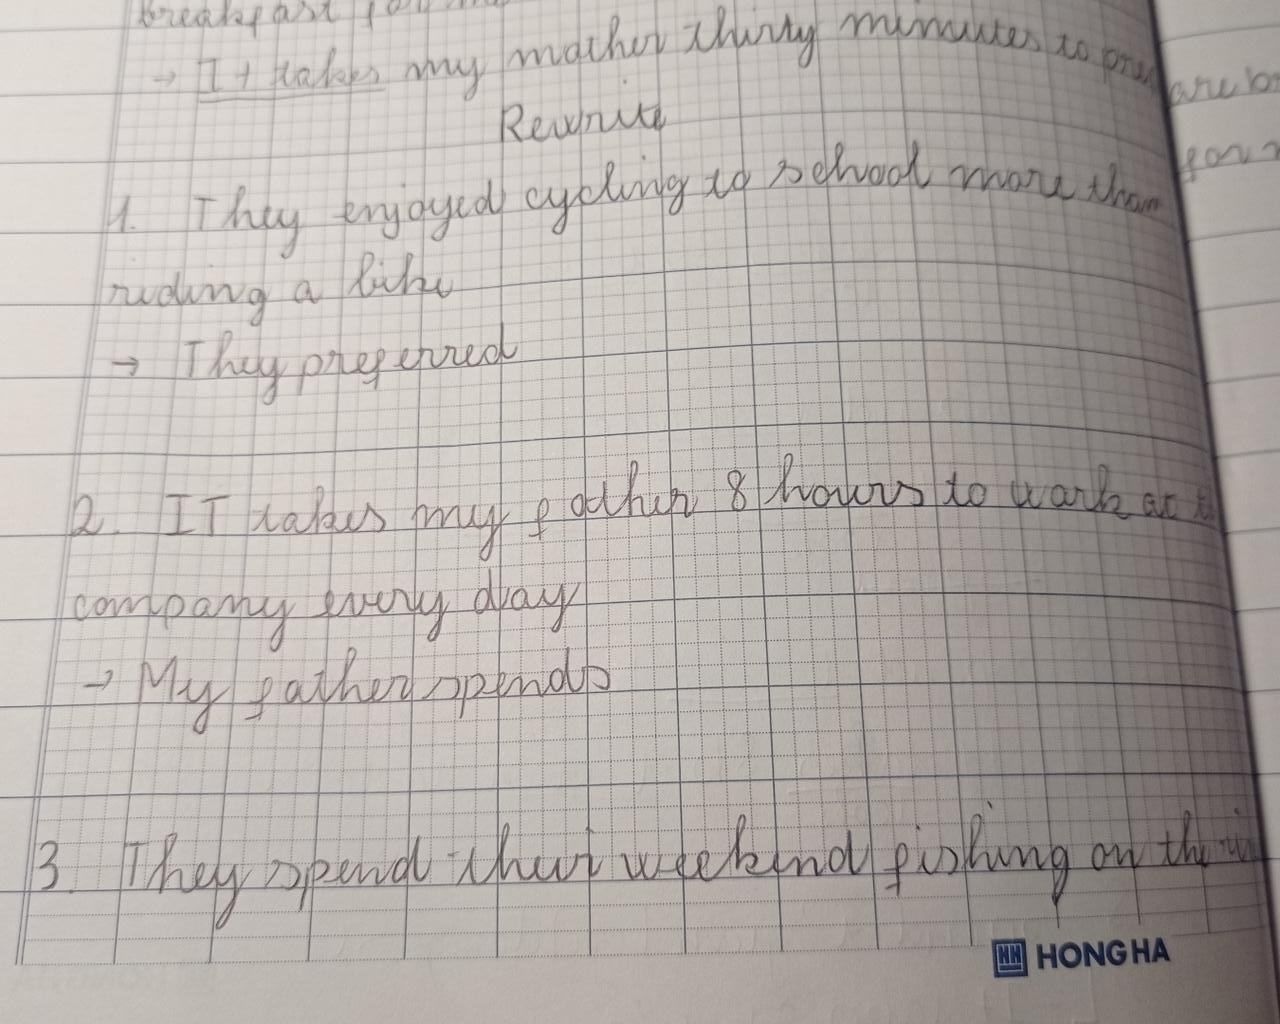 breakfast for
→ It takes my mother thirty minutes to prepare b
Rewrite
for m
1. They enjoyed cycling to school more than
riding a bike
→ They preferred
2. IT takes my father 8 hours to work at
company every day
→ My father spends
3. They spend their weekend fishing on the
HONG HA